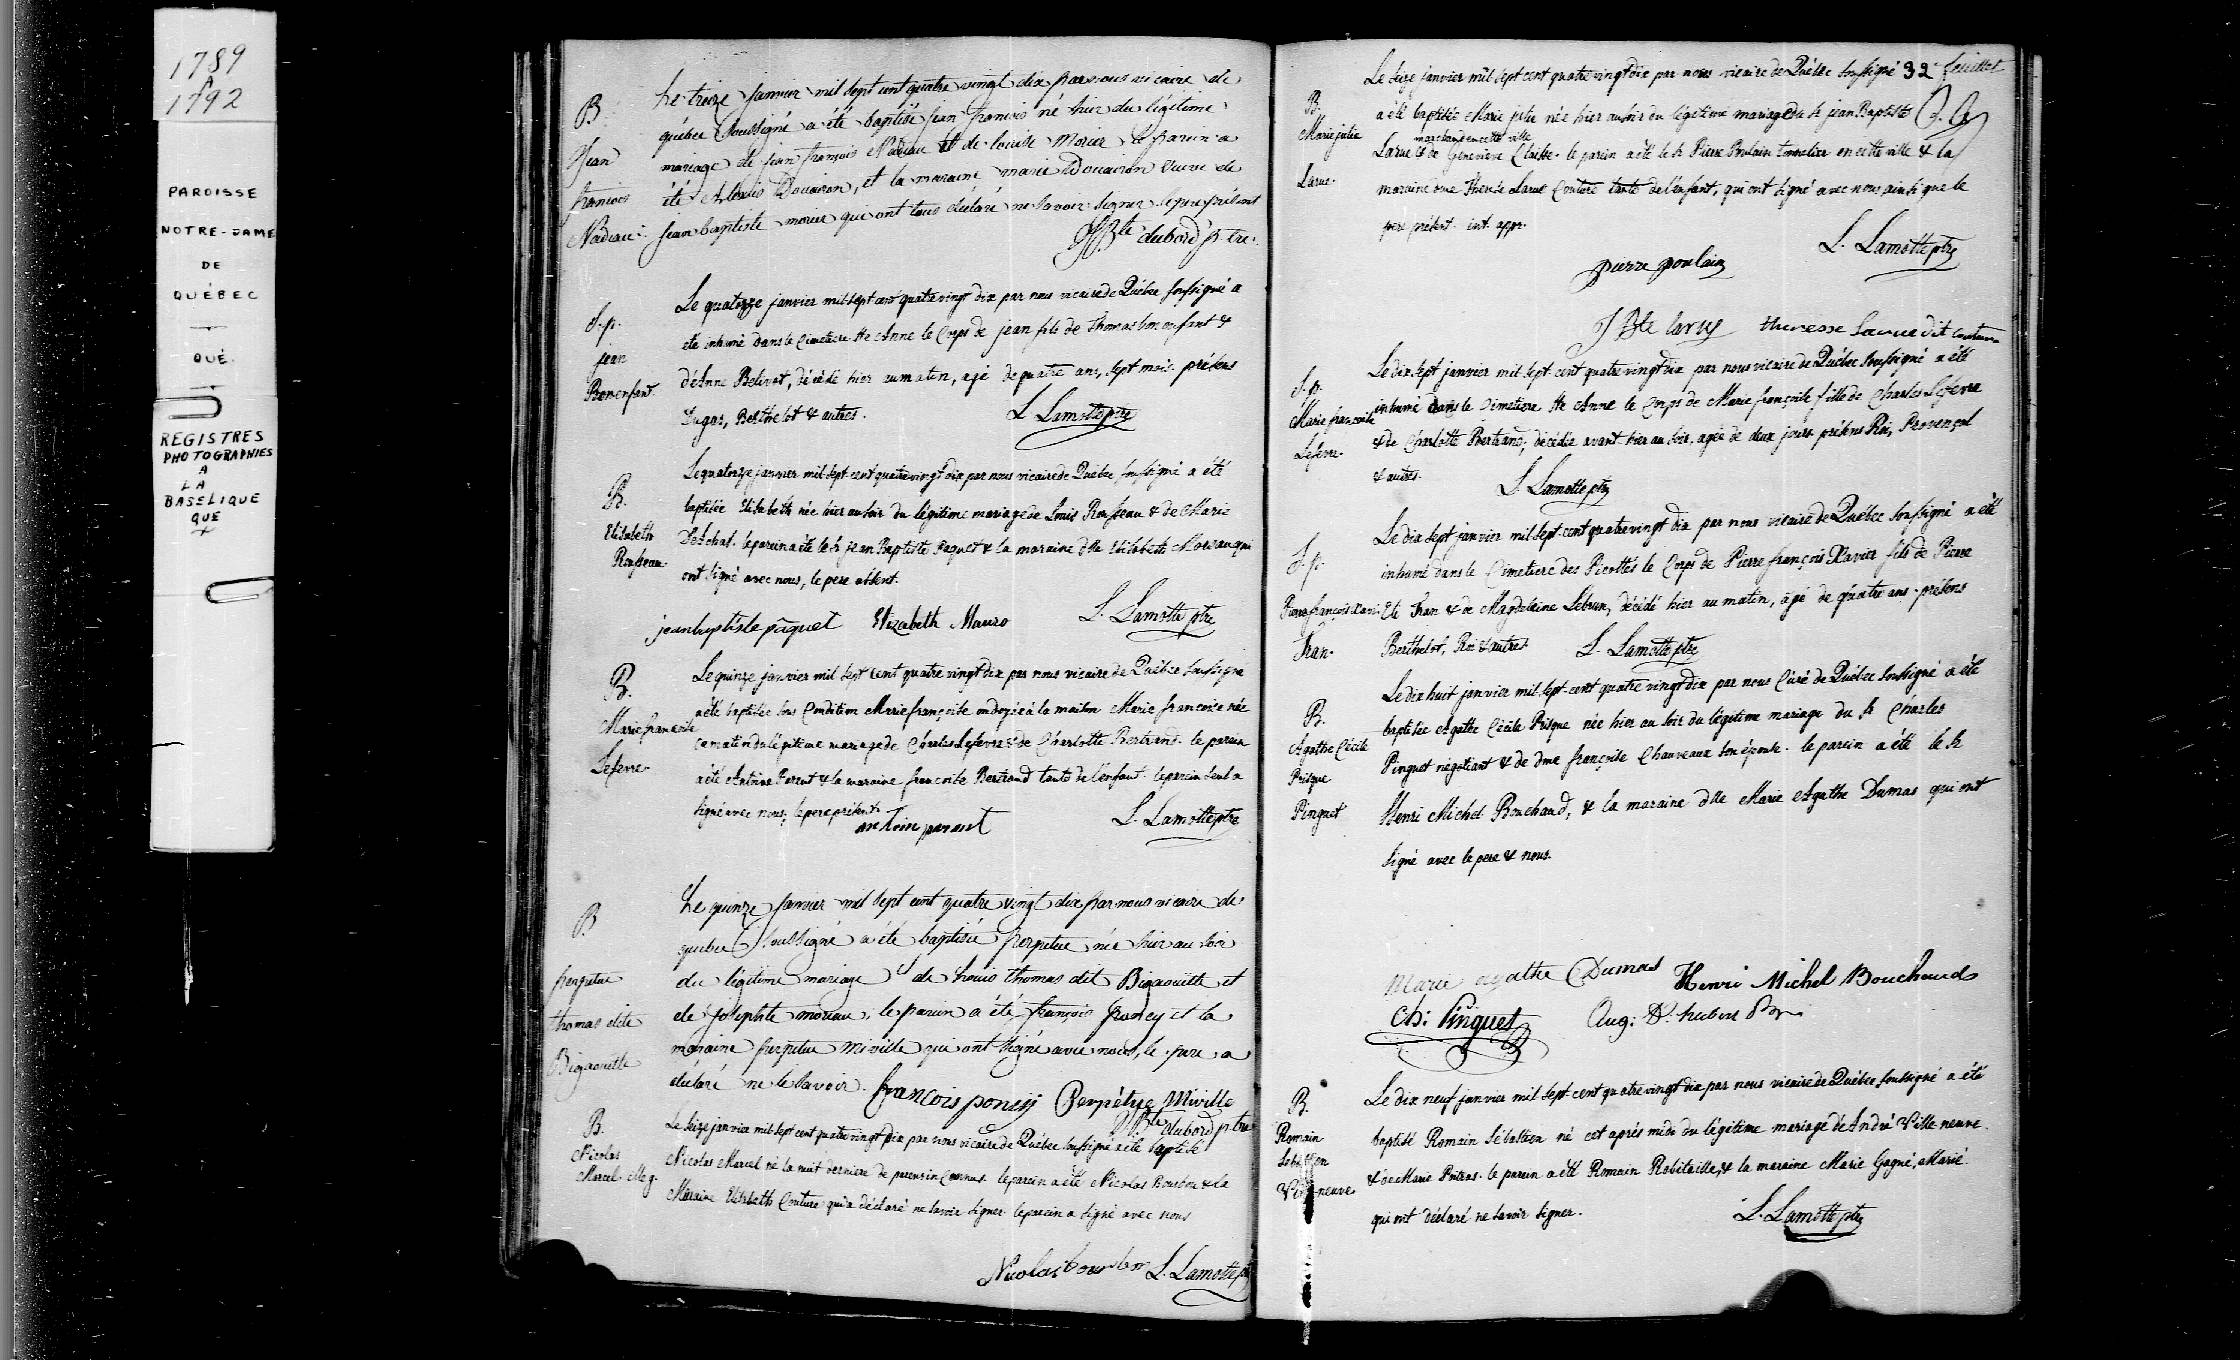 1789
A
1792
PAROISSE
NOTRE-DAME
DE
QUÉBEC
QUÉ.
REGISTRES
PHOTOGRAPHIES
A
LA
BASELIQUE
QUE
B.
Jean
francois
Nadeau
Le treize janvier mil sept cent quatre vingt dix par nous vicaire de
québec soussigné a été baptisé jean francois né hier du légitime
mariage de jean françois Nadeau et de louise Morier le parain a
été Alexis Douairon, et la maraine marie Douairon veuve de
jean baptiste morier qui ont tous déclaré ne savoir signer le pere présent
JBte dubord ptre
S.p.
jean
Bonenfant
Le quatorze janvier mil sept cent quatre vingt dix par nous vicaire de Québec soussigné a
eté inhumé dans le Cimetiere Ste Anne le Corps de jean fils de Thomas bonenfant &
d'Anne Belivet, décédé hier au matin, agé de quatre ans, sept mois. présens
Dugas, Berthelot & autres.
L. Lamotte ptre
B.
Elisabeth
Rousseau
Le quatorze janvier mil sept cent quatre vingt dix par nous vicaire de Québec soussigné a été
baptisée Elisabeth née hier au soir du légitime mariage de Louis Rousseau & de Marie
Deschal. le parein a été le Sr jean Baptiste Paquet & la maraine dlle Elisabeth qui
ont signé avec nous, le pere absent.
jean baptiste pâquet Elizabeth Mauro L. Lamotte ptre
B.
Marie francoise
Lefevre
Le quinze janvier mil sept cent quatre vingt dix par nous vicaire de Québec soussigné
a été baptisée sous Condition Marie françoise ondoyée à la maison Marie francoise née
ce matin du légitime mariage de Charles Lefevre & de Charlotte Bertrand. le parein
a été Antoine Parent & la maraine francoise Bertrand tante de l'enfant. le parein seul a
signé avec nous, le pere présent
antoin parant L. Lamotte ptre
B
perpetue
thomas dite
Bigaouille
Le quinze janvier mil sept cent quatre vingt dix par nous vicaire de
quebec soussigné a été baptisée perpetue née hier au soir
du légitime mariage de louis thomas dit Bigaouille et
de josephte moreau; le parain a été françois poncy et la
maraine perpetue Miville qui ont signé avec nous, le pere a
déclaré ne le savoir. francois poncy Perpétue Miville
JBte dubord ptre
B.
Nicolas
Marcel
Le seize janvier mil sept cent quatre vingt dix par nous vicaire de Québec soussigné a été baptisé
Nicolas Marcel né la nuit derniere de parens in Connus. le parein a été Nicolas & la
Maraine Elisabeth Couture qui a déclaré ne savoir signer le parein a signé avec nous
Nicolas L. Lamotte ptre
32e feuillet
B.
Marie julie
Larue
Le seize janvier mil sept cent quatre vingt dix par nous vicaire de Québec soussigné
a été baptisée Marie julie née hier au soir du légitime mariage du Sr jean Baptiste
marchand en cette ville
Larue & de Genevieve Claisse. le parein a été le Sr Pierre Poulain tonnelier en cette ville & la
maraine Therese Larue Couture tante de l'enfant, qui ont signé avec nous ainsi que le
pere présent. int. appr.
L. Lamotte ptre
pierre poulain
J Bte larue theresse Larue dit couture
S.p.
Marie francoise
Lefevre
Le dix sept janvier mil sept cent quatre vingt dix par nous vicaire de Québec soussigné a été
inhumé dans le Cimetiere Ste Anne le Corps de Marie françoise fille de Charles Lefevre
& de Charlotte Bertrand, décédée avant hier au soir, agée de deux jours. présens Roi, Provençal
& autres.
L. Lamotte ptre
S.p.
Pierre françois Xavier
Fran
Le dix sept janvier mil sept cent quatre vingt dix par nous vicaire de Québec soussigné a été
inhumé dans le Cimetiere des Picottés le Corps de Pierre françois Xavier fils de Pierre
Fran & de Magdeleine Lebrun, décédé hier au matin, agé de quatre ans. présens
Berthelot, Roi & autres L. Lamotte ptre
B.
Agathe Cécile
Prisque
Pinguet
Le dix huit janvier mil sept cent quatre vingt dix par nous Curé de Québec soussigné a été
baptisée Agathe Cécile Prisque née hier au soir du légitime mariage du Sr Charles
Pinguet négotiant & de dme françoise Chauveaux son épouse. le parein a été le Sr
Henri Michel Bouchaud, & la maraine dlle Marie Agathe Dumas qui ont
signé avec le pere & nous.
Marie agathe Dumas Henri Michel Bouchaud
Ch: Pinguet Aug: D. hubert
B.
Romain
Sébastien
Villeneuve
Le dix neuf janvier mil sept cent quatre vingt dix par nous vicaire de Québec soussigné a été
baptisé Romain Sébastien né cet après midi du légitime mariage d'André Villeneuve
& de Marie Poitras. le parein a été Romain Robitaille, & la maraine Marie Gagné,
qui ont déclaré ne savoir signer.
L. Lamotte ptre